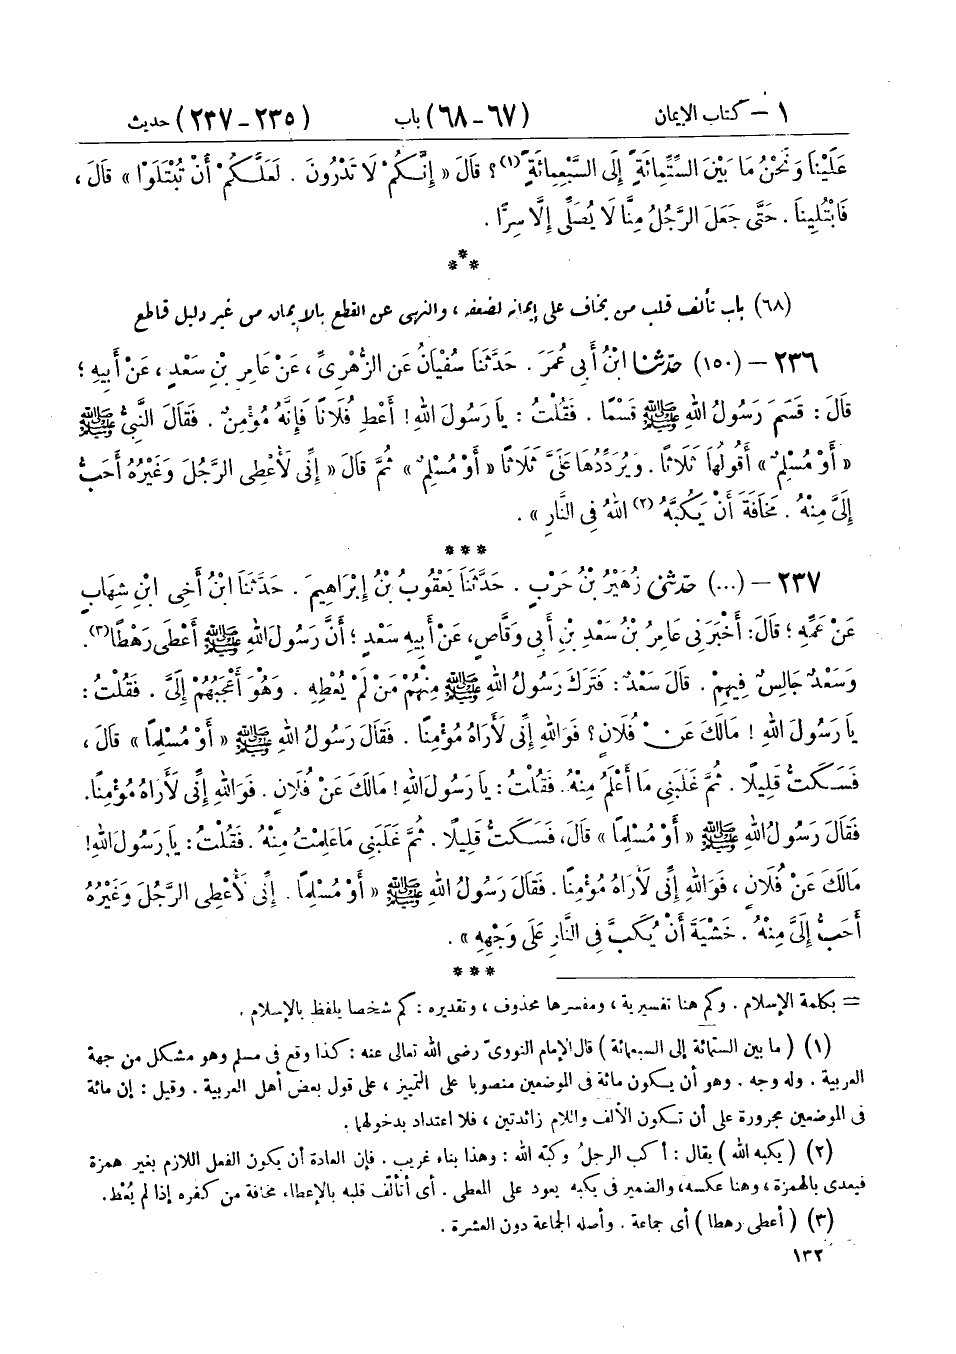 ١ - كتاب الإيمان (٦٧ - ٦٨) باب (٢٣٥ - ٢٣٧) حديث
عَلَيْنَا وَنَحْنُ مَا بَيْنَ السِّتِّمِائَةٍ إِلَى السَّبْعِمِائَةٍ (١)؟ قَالَ « إِنَّكُمْ لَا تَدْرُونَ . لَعَلَّكُمْ أَنْ تُبْتَلَوْا » قَالَ ،
فَابْتُلِينَا . حَتَّى جَعَلَ الرَّجُلُ مِنَّا لَا يُصَلِّى إِلَّا سِرًّا .
***
(٦٨) باب تألف قلب من يخاف على إيمانه لضعفه ، والنهى عن القطع بالإيمان من غير دليل قاطع
٢٣٦ - (١٥٠) حَدَّثَنَا ابْنُ أَبِي عُمَرَ . حَدَّثَنَا سُفْيَانُ عَنِ الزُّهْرِىِّ ، عَنْ عَامِرِ بْنِ سَعْدٍ ، عَنْ أَبِيهِ ؛
قَالَ : قَسَمَ رَسُولُ اللهِ ﷺ قَسْمًا . فَقُلْتُ : يَا رَسُولَ اللهِ ! أَعْطِ فُلَانًا فَإِنَّهُ مُؤْمِنٌ . فَقَالَ النَّبِىُّ ﷺ
« أَوْ مُسْلِمٌ » أَقُولُهَا ثَلَاثًا . وَيُرَدِّدُهَا عَلَىَّ ثَلَاثًا « أَوْ مُسْلِمٌ » ثُمَّ قَالَ « إِنِّى لَأُعْطِى الرَّجُلَ وَغَيْرُهُ أَحَبُّ
إِلَىَّ مِنْهُ . مَخَافَةَ أَنْ يَكُبَّهُ (٢) اللهُ فِى النَّارِ » .
***
٢٣٧ - (...) حَدَّثَنِى زُهَيْرُ بْنُ حَرْبٍ . حَدَّثَنَا يَعْقُوبُ بْنُ إِبْرَاهِيمَ . حَدَّثَنَا ابْنُ أَخِى ابْنِ شِهَابٍ
عَنْ عَمِّهِ ؛ قَالَ : أَخْبَرَنِى عَامِرُ بْنُ سَعْدِ بْنِ أَبِى وَقَّاصٍ ، عَنْ أَبِيهِ سَعْدٍ ؛ أَنَّ رَسُولَ اللهِ ﷺ أَعْطَى رَهْطًا (٣) .
وَسَعْدٌ جَالِسٌ فِيهِمْ . قَالَ سَعْدٌ : فَتَرَكَ رَسُولُ اللهِ ﷺ مِنْهُمْ مَنْ لَمْ يُعْطِهِ . وَهُوَ أَعْجَبُهُمْ إِلَىَّ . فَقُلْتُ :
يَا رَسُولَ اللهِ ! مَالَكَ عَنْ فُلَانٍ ؟ فَوَاللهِ إِنِّى لَأَرَاهُ مُؤْمِنًا . فَقَالَ رَسُولُ اللهِ ﷺ « أَوْ مُسْلِمًا » قَالَ ،
فَسَكَتُّ قَلِيلًا . ثُمَّ غَلَبَنِى مَا أَعْلَمُ مِنْهُ . فَقُلْتُ : يَا رَسُولَ اللهِ ! مَالَكَ عَنْ فُلَانٍ . فَوَاللهِ إِنِّى لَأَرَاهُ مُؤْمِنًا .
فَقَالَ رَسُولُ اللهِ ﷺ « أَوْ مُسْلِمًا » قَالَ ، فَسَكَتُّ قَلِيلًا . ثُمَّ غَلَبَنِى مَا عَلِمْتُ مِنْهُ . فَقُلْتُ : يَا رَسُولَ اللهِ !
مَالَكَ عَنْ فُلَانٍ ، فَوَاللهِ إِنِّى لَأَرَاهُ مُؤْمِنًا . فَقَالَ رَسُولُ اللهِ ﷺ « أَوْ مُسْلِمًا . إِنِّى لَأُعْطِى الرَّجُلَ وَغَيْرُهُ
أَحَبُّ إِلَىَّ مِنْهُ . خَشْيَةَ أَنْ يُكَبَّ فِى النَّارِ عَلَى وَجْهِهِ » .
***
= بكلمة الإسلام . وكم هنا تفسيرية ، ومفسرها محذوف ، وتقديره : كم شخصا يلفظ بالإسلام .
(١) ( ما بين الستمائة إلى السبعمائة ) قال الإمام النووىّ رضى الله تعالى عنه : كذا وقع فى مسلم وهو مشكل من جهة
العربية . وله وجه . وهو أن يكون مائة فى الموضعين منصوبا على التمييز ، على قول بعض أهل العربية . وقيل : إن مائة
فى الموضعين مجرورة على أن تكون الألف واللام زائدتين ، فلا اعتداد بدخولهما .
(٢) ( يكبه الله ) يقال : أكب الرجلُ وكبّه الله : وهذا بناء غريب . فإن العادة أن يكون الفعل اللازم بغير همزة
فيعدى بالهمزة ، وهنا عكسه ، والضمير فى يكبه يعود على المعطى . أى أتألّف قلبه بالإعطاء مخافة من كفره إذا لم يُعْطَ .
(٣) ( أعطى رهطا ) أى جماعة . وأصله الجماعة دون العشرة .
١٣٢